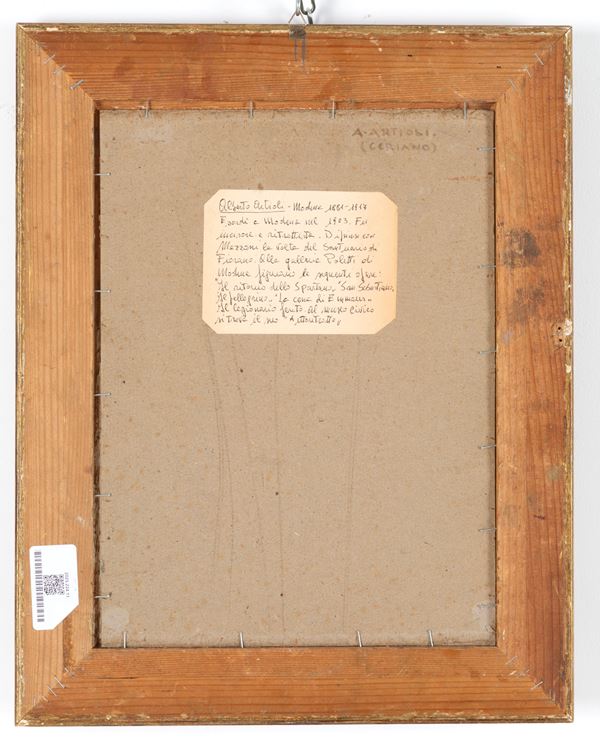 A. ARTIOLI.
(CERIANO)
Alberto Artioli - Modena 1881-1917
Esordì a Modena nel 1903. Fu
incisore e ritrattista. Dipinse con
Mazzoni la volta del Santuario di
Fiorano. Alla galleria Poletti di
Modena figurano le seguenti opere:
"Il ritorno dello Spartano, "San Sebastiano,
Il pellegrino, "La cena di Emmaus"
Il legionario ferito. Al museo civico
si trova il suo "Autoritratto"